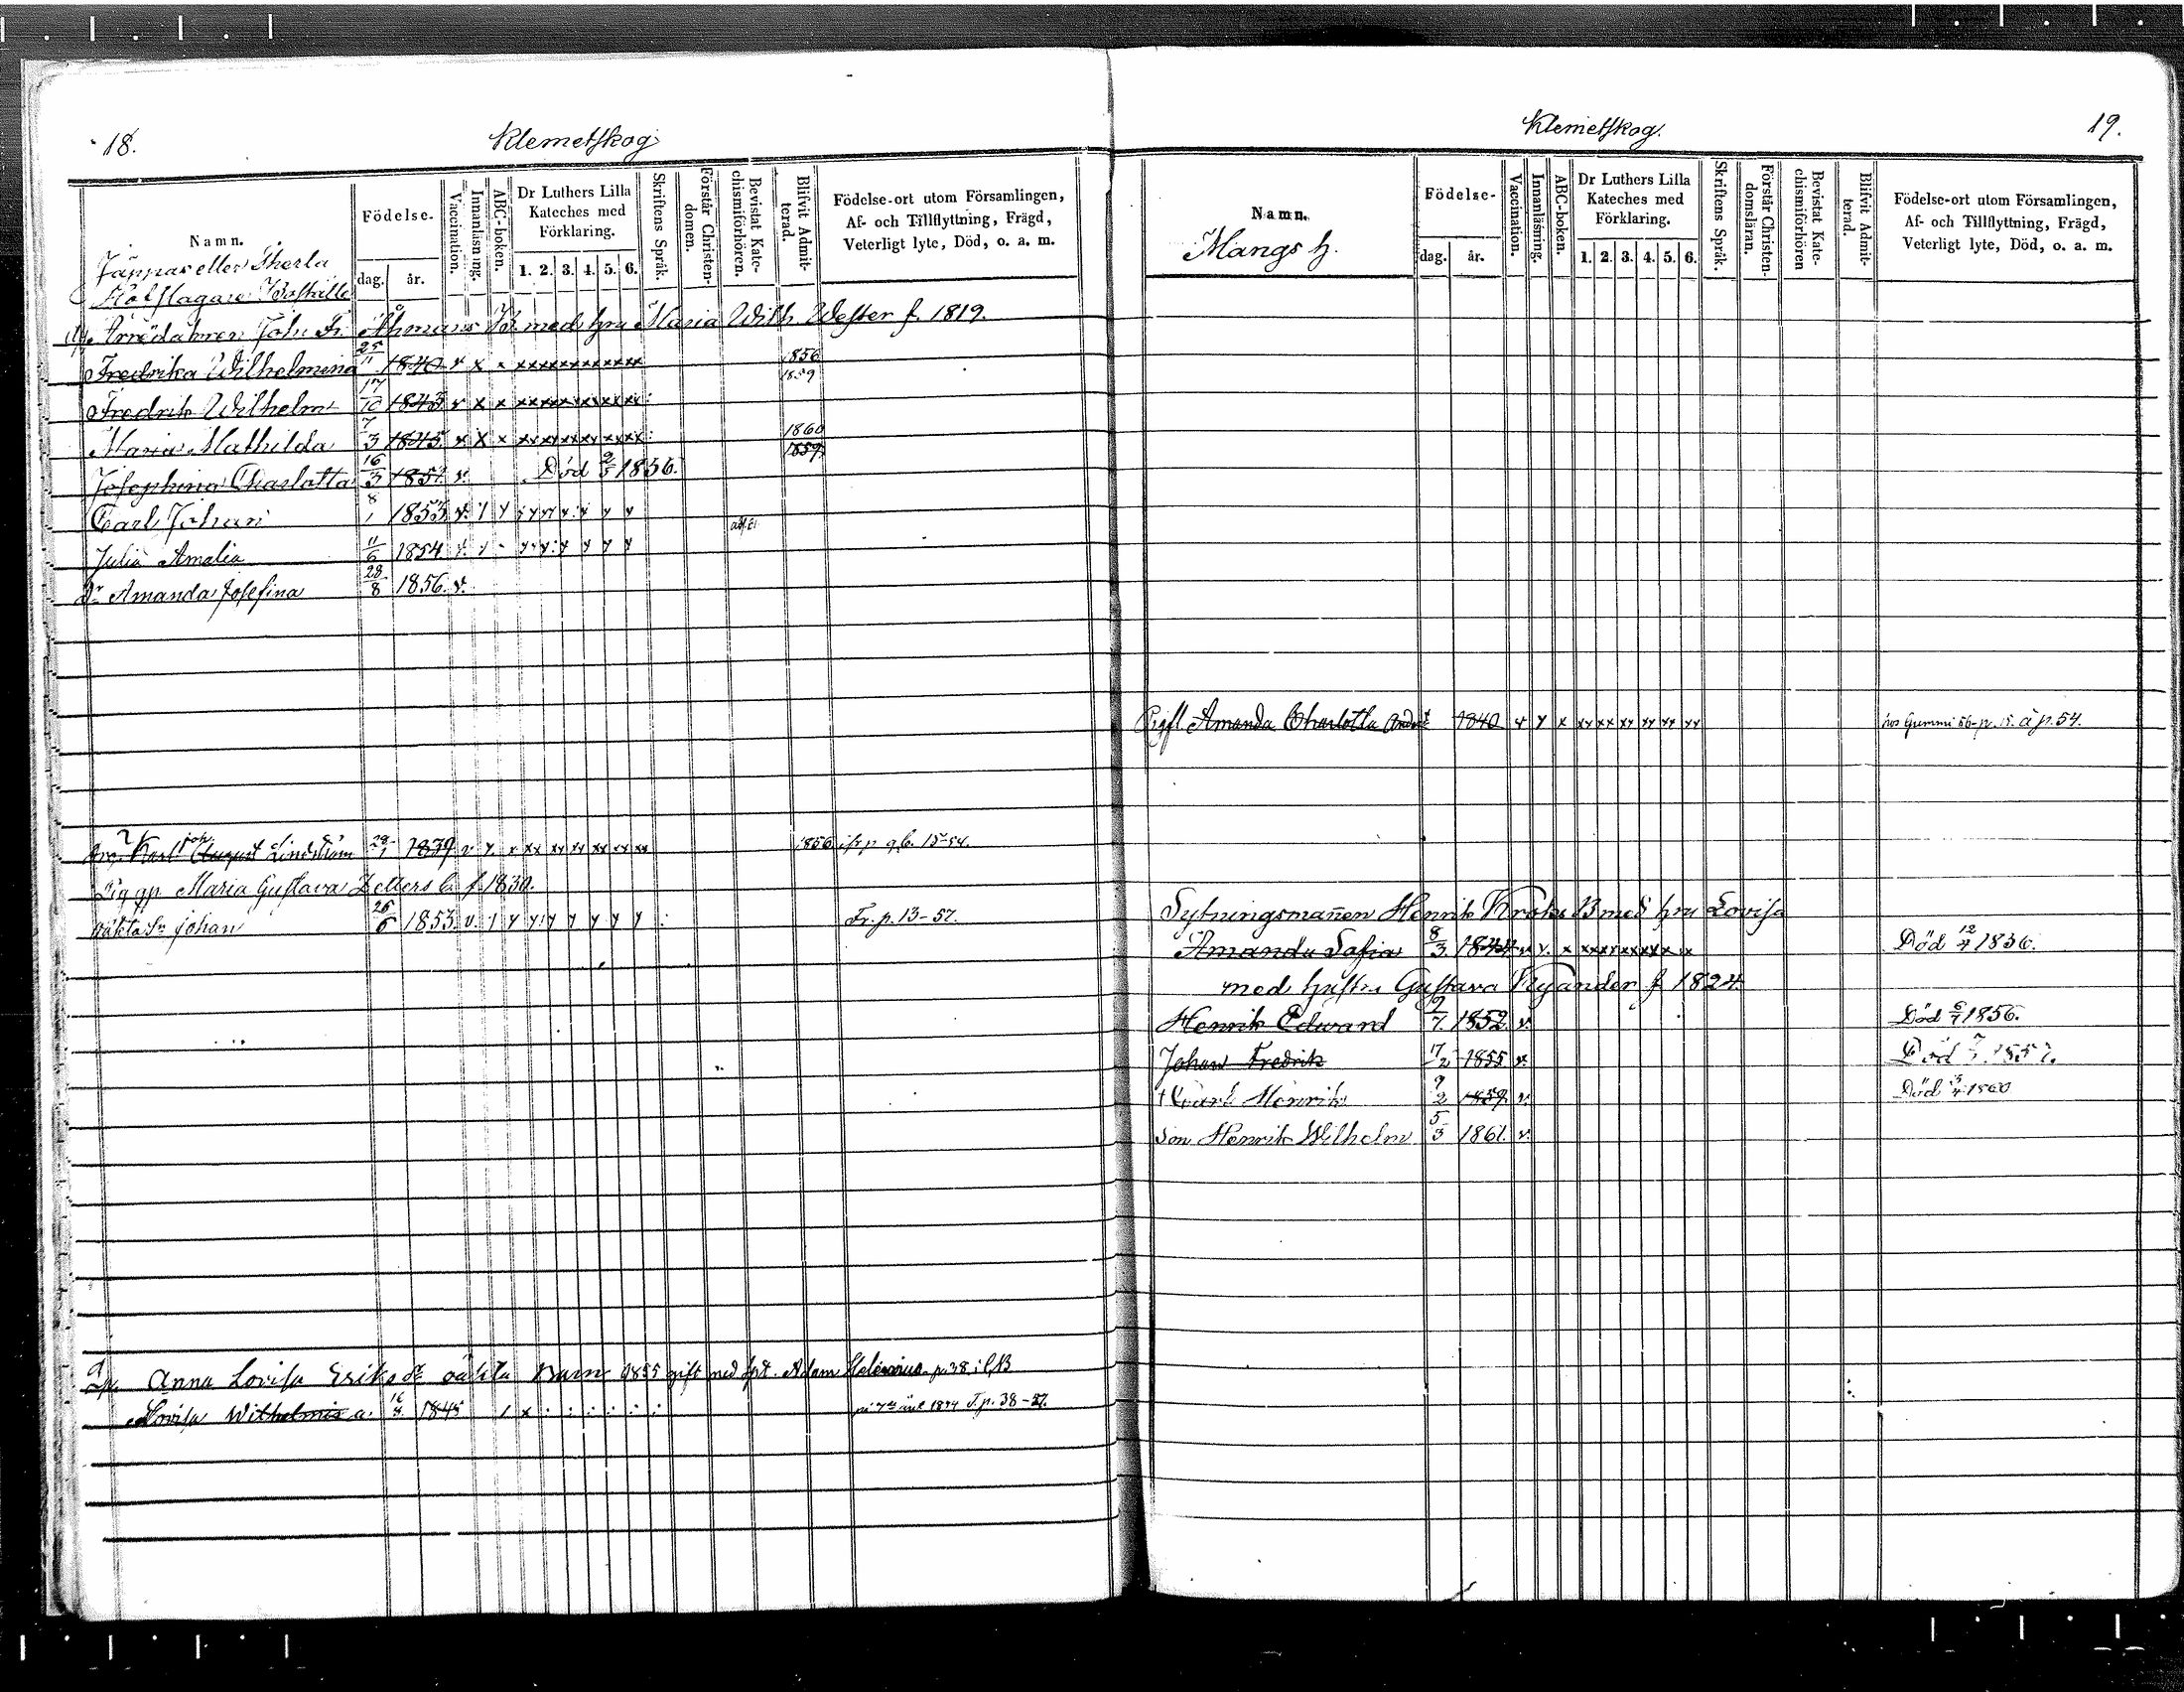 18.
Klemetskog
Namn.
Födelse.
dag.
år.
Vaccination.
Innanläsning.
ABC-boken.
Dr Luthers Lilla Kateches med Förklaring.
1. 2. 3. 4. 5. 6.
Skriftens Språk.
Förstår Christendomen.
Bevistat Katechismiförhören.
Blifvit Admitterad.
Födelse-ort utom Församlingen,
Af- och Tillflyttning, Frägd,
Veterligt lyte, Död, o. a. m.
Jäppas eller Skerla
Joh. Fr. Åhmans med hru Maria Wilh. Wester f. 1819.
Fredrika Wilhelmina 25/11 1840 v x x xx xx xx xx xx xx 1856 1859
Fredrik Wilhelm 17/10 1843 v x x xx xx xx xx xx xx
Maria Mathilda 7/3 1845 v x x xx xx xx xx xx xx 1860 1859
Josephina Charlotta 16/3 1851 v. Död 2/5 1856.
Carl Johan 8/1 1853 v.
Julia Amalia 11/6 1854 v.
Dr Amanda Josefina 28/8 1856. v.
Karl August Joh. Lindström 1839 v x x xx xx xx xx xx xx 1856
Pig gp Maria Gustava f. 1830.
oäkta Sn Johan 26/6 1853. v. Fr. p. 13-57.
Anna Lovisa Eriks dr oäkta barn 1855 gift med Adam Helenius p. 38 i C.B
Lovisa Wilhelmina 16/8 1845 T. p. 38-57.
Klemetskog.
19.
Namn.
Mangs h.
Födelse-
dag.
år.
Vaccination.
Innanläsning.
ABC-boken.
Dr Luthers Lilla Kateches med Förklaring.
1. 2. 3. 4. 5. 6.
Skriftens Språk.
Förstår Christendomsläran.
Bevistat Katechismiförhören
Blifvit Admitterad.
Födelse-ort utom Församlingen,
Af- och Tillflyttning, Frägd,
Veterligt lyte, Död, o. a. m.
Amanda Charlotta 1840 v y x xx xx xx xx xx xx hos Gummi 56-p. 15. å p. 54.
Sytningsmannen Henrik B med hru Lovisa
Amanda Sofia 8/3. 1844 Död 12/4 1856.
med hustru Gustava Nyander f 1824
Henrik Edward 2/7. 1852 v. Död 6/7 1856.
Johan Fredrik 17/2 1855 v. Död
Carl Henrik 9/2 1859 v. Död 1860
Son Henrik Wilhelm 5/3 1861. v.